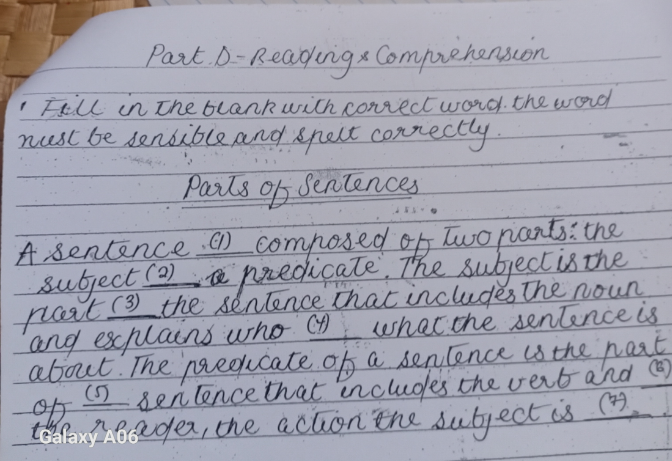 Part.D-Reading & Comprehension
Fill in the blank with correct word. the word
must be sensible and spelt correctly.
Parts of Sentences
A sentence (1) composed of Two parts: the
subject (2) predicate. The subject is the
part (3) the sentence that includes the noun
and explains who (4) what the sentence is
about. The predicate of a sentence is the part
of (5) sentence that includes the verb and (6)
the reader, the action the subject is (7).
Galaxy A06